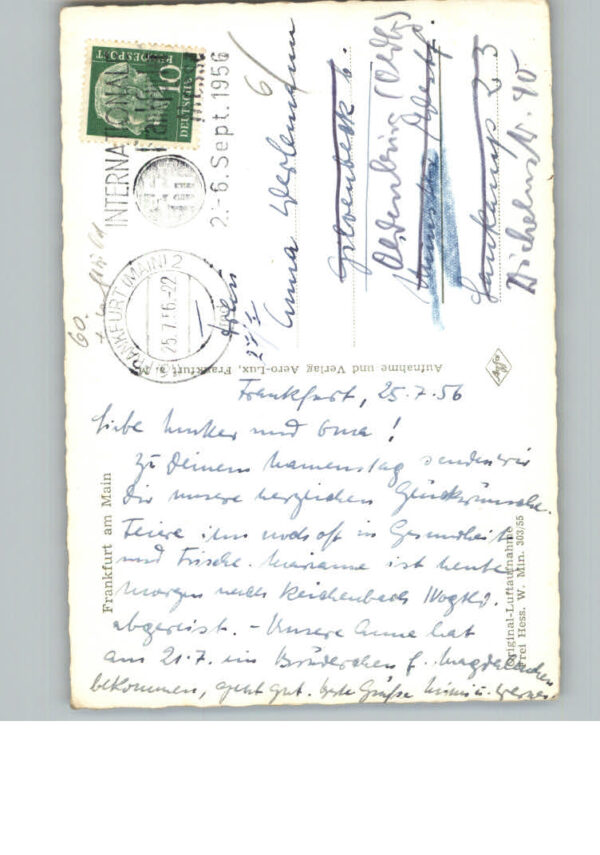 Frankfurt, 25.7.56
Liebe Mutter und Oma!
Zu Deinem Namenstag senden wir
Dir unsere herzlichen Glückwünsche.
Feiere ihn noch oft in Gesundheit
und Frische. Marianne ist heute
morgen nach Reichenbach Vogtld.
abgereist. – Unsere Anne hat
am 21.7. ein Brüderchen f. Magdalenchen
bekommen, geht gut. Herzl. Grüße Mimi u. Werner
Frankfurt am Main
Original-Luftaufnahme
Frei Hess. W. Min. 303/55
Aufnahme und Verlag Aero-Lux, Frankfurt a. M.
Agfa
DEUTSCHE
BUNDESPOST
10
INTERNATIONAL
2.-6. Sept. 1956
FRANKFURT (MAIN) 2
25.7.56-22
Frau
Anna
b.
Oldenburg (Oldbg)
Münster Westf.
23
40
60.